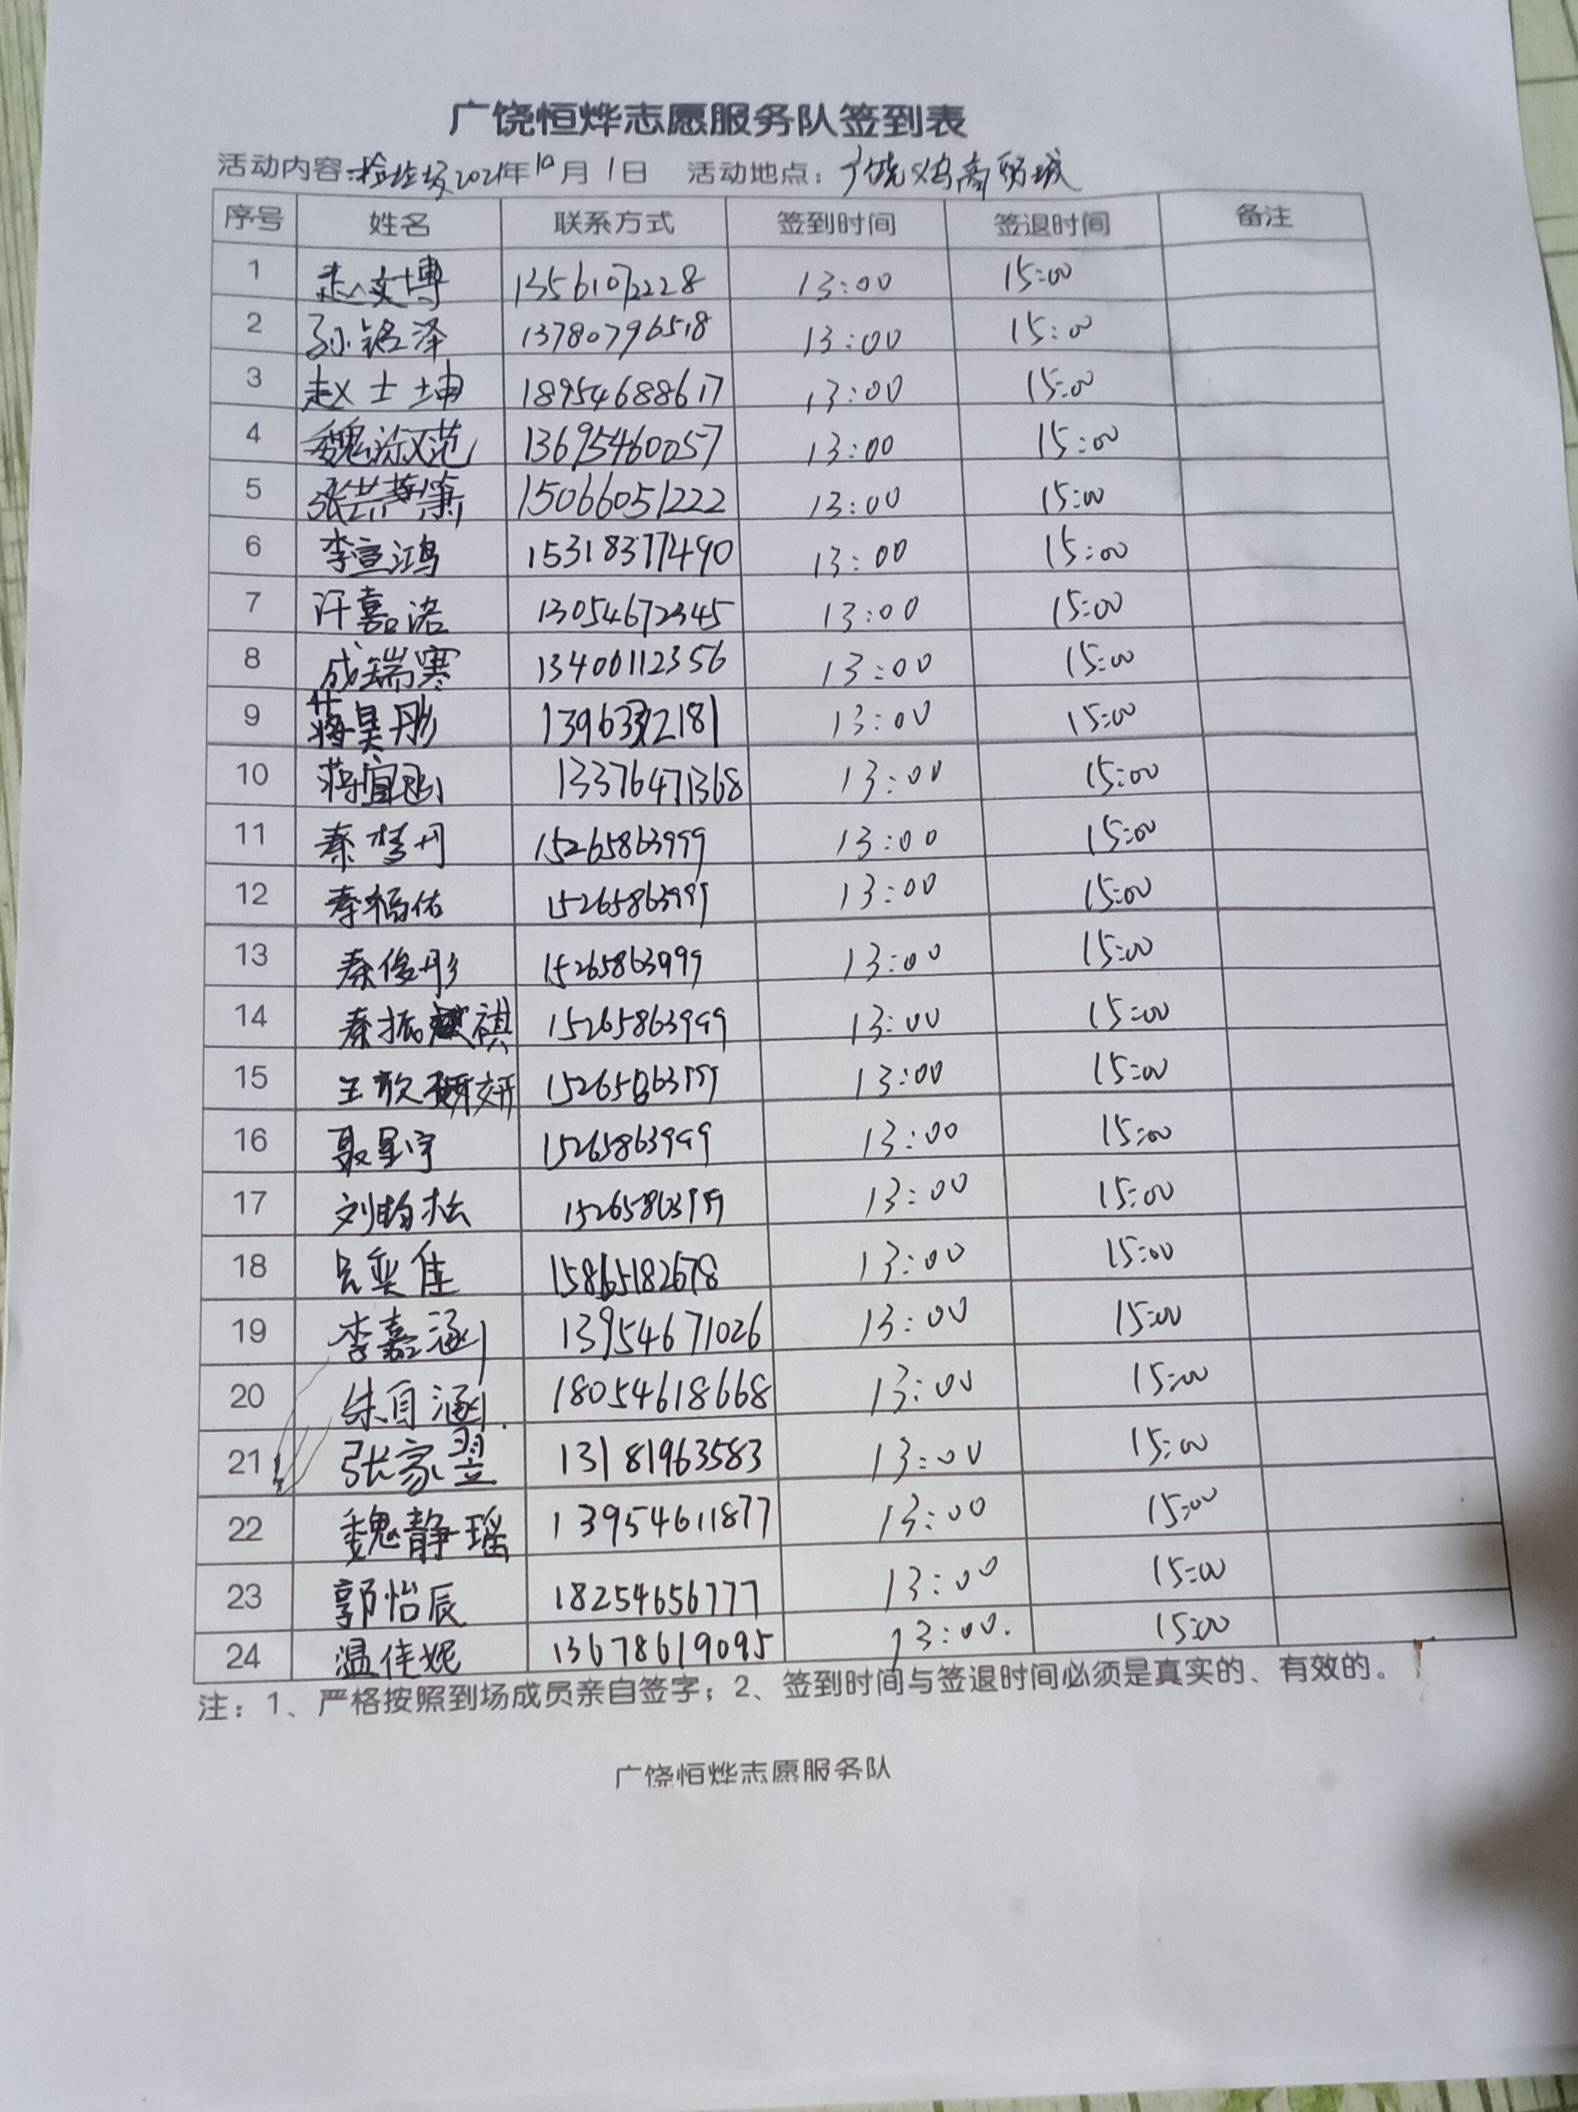 广饶恒烨志愿服务队签到表
活动内容:捡垃圾2021年10月1日 活动地点:广饶义乌商贸城
序号 姓名 联系方式 签到时间 签退时间 备注
1 赵文博 13561072228 13:00 15:00
2 孙铭泽 13780796518 13:00 15:00
3 赵士坤 18954688617 13:00 15:00
4 魏 范 13695460057 13:00 15:00
5 张 15066051222 13:00 15:00
6 李宣鸿 15318377490 13:00 15:00
7 许嘉洛 13054672345 13:00 15:00
8 成瑞寒 13400112356 13:00 15:00
9 蒋昊彤 13:00 15:00
10 蒋宜 13376471368 13:00 15:00
11 秦梦丹 15265863999 13:00 15:00
12 秦福佑 15265863999 13:00 15:00
13 秦俊彤 15265863999 13:00 15:00
14 秦振祺 15265863999 13:00 15:00
15 王歆妍 15265863999 13:00 15:00
16 聂星宇 15265863999 13:00 15:00
17 刘 松 15265863999 13:00 15:00
18 吕奕佳 15865182678 13:00 15:00
19 李嘉涵 13954671026 13:00 15:00
20 朱自涵 18054618668 13:00 15:00
21 张家翌 13181963583 13:00 15:00
22 魏静瑶 13954611877 13:00 15:00
23 郭怡辰 18254656777 13:00 15:00
24 温佳妮 13678619095 13:00. 15:00
注:1、严格按照到场成员亲自签字;2、签到时间与签退时间必须是真实的、有效的。
广饶恒烨志愿服务队